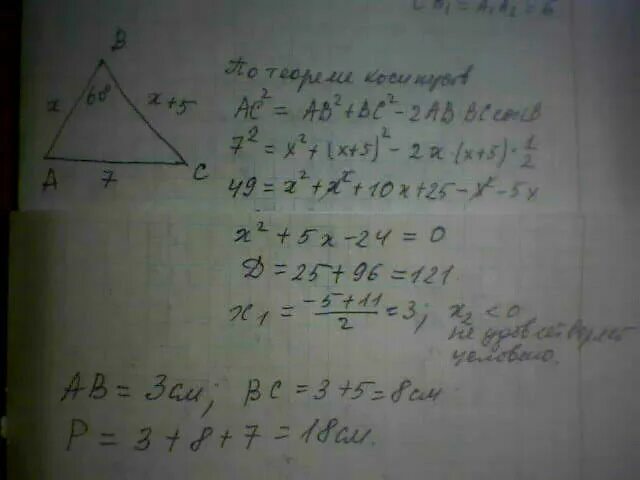 CB₁ = A₁A₂ = 6
B
x 60° x+5
A 7 C
По теореме косинусов
AC² = AB² + BC² - 2AB BC cosB
7² = x² + (x+5)² - 2x (x+5) · 1/2
49 = x² + x² + 10x + 25 - x² - 5x
x² + 5x - 24 = 0
D = 25 + 96 = 121.
x₁ = (-5+11)/2 = 3; x₂ < 0
не удовлетворяет
условию.
AB = 3см; BC = 3+5 = 8см
P = 3 + 8 + 7 = 18см.